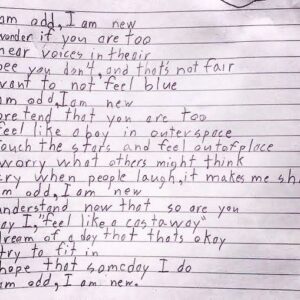 am odd, I am new
wonder if you are too
hear voices in the air
see you don't, and that's not fair
want to not feel blue
am odd, I am new
pretend that you are too
feel like a boy in outerspace
touch the stars and feel out of place
worry what others might think
cry when people laugh, it makes me sh
am odd, I am new
understand now that so are you
say I, "feel like a castaway"
dream of a day that thats okay
try to fit in
hope that someday I do
am odd, I am new.